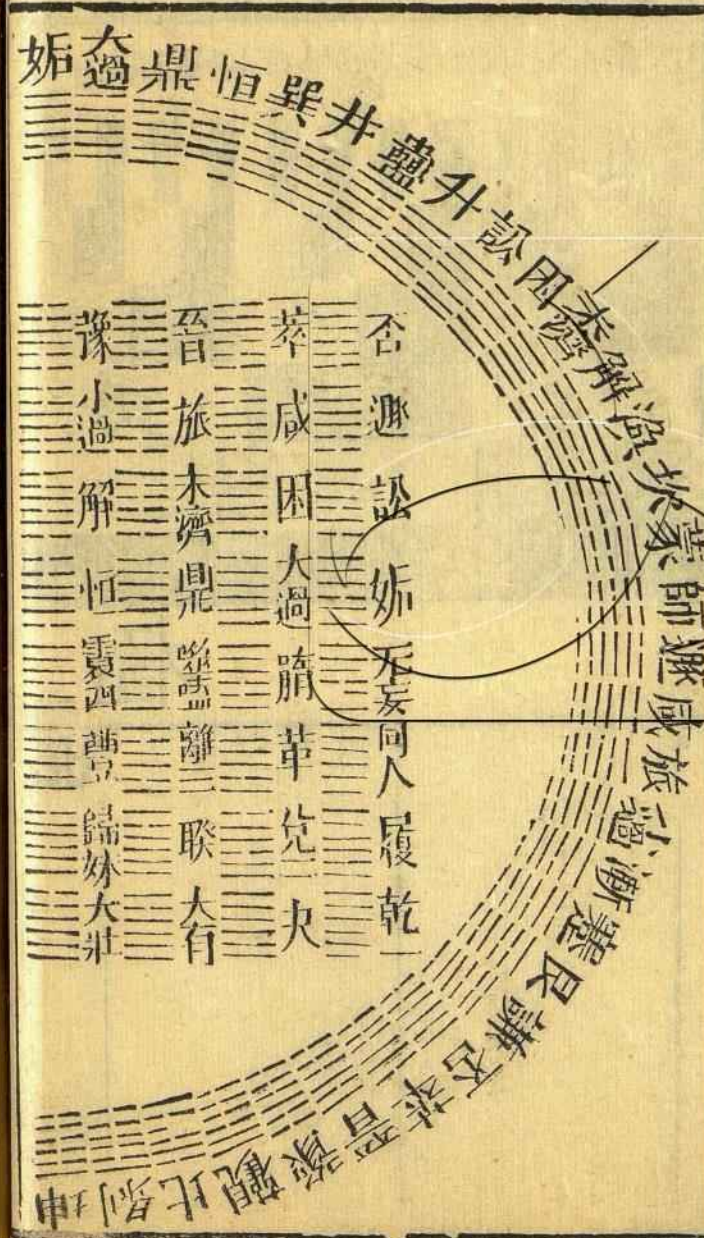 姤大過鼎恒巽井蠱升訟困未濟解渙坎蒙師遯咸旅小過漸蹇艮謙否萃晉豫觀比剝坤
否遯訟姤无妄同人履乾一
萃咸困大過隋革兌二夬
晉旅未濟鼎噬嗑離三睽大有
豫小過解恒震四豐歸妹大壯